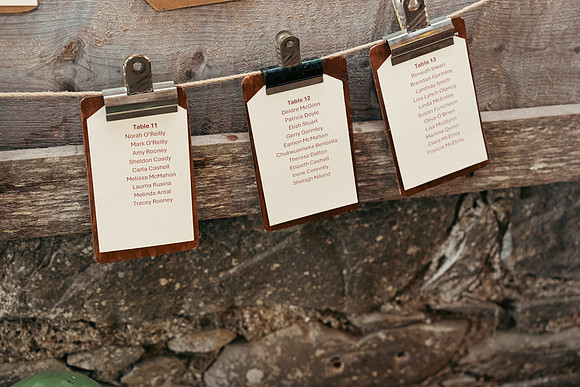 Table 11
Norah O'Reilly
Mark O'Reilly
Amy Rooney
Sheldon Coady
Carla Cashell
Melissa McMahon
Lauma Rusina
Melinda Antal
Tracey Rooney
Table 12
Deidre McGinn
Patrice Doyle
Eilish Stuart
Gerry Gormley
Eamon McMahon
Chukwuemeka Benbella
Theresa Dalton
Elspeth Cashell
Irene Connolly
Shelagh Niland
Table 13
Roisin Irwan
Brendan Gormley
Lyndsay Smith
Lisa Lynch Glancy
Linda McEntee
Susan Funcheon
Clive O'Brien
Lisa McGlynn
Martina Quinn
Claire McElroy
Francis McElroy